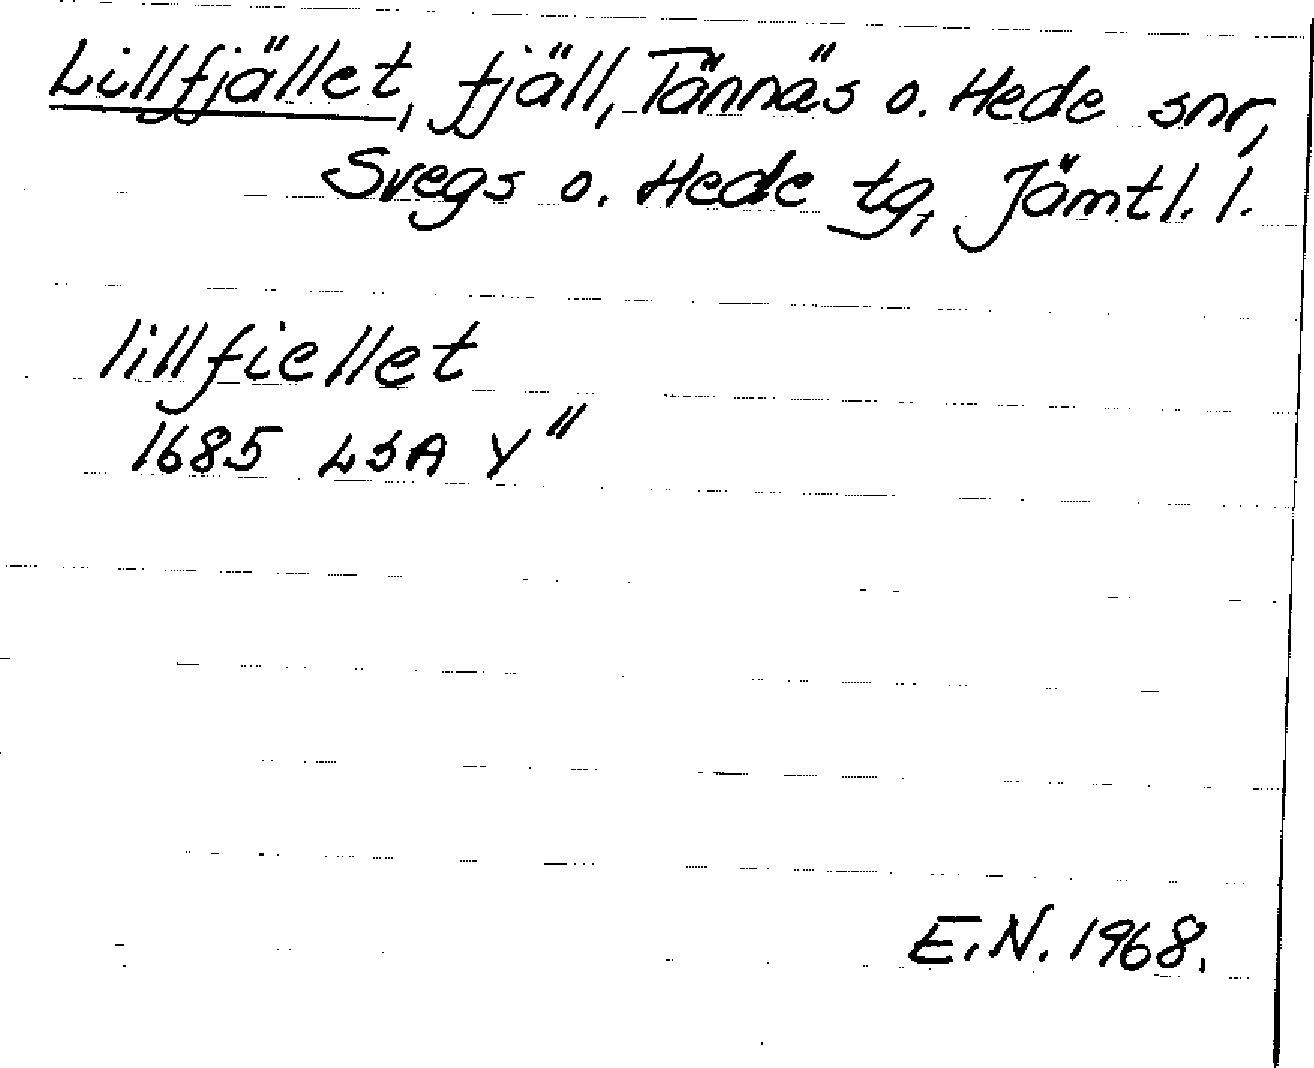 Lillfjället, fjäll, Tännäs o. Hede snr,
Svegs o. Hede tg, Jämtl. l.
lillfiellet
1685 LSA Y"
E.N. 1968.